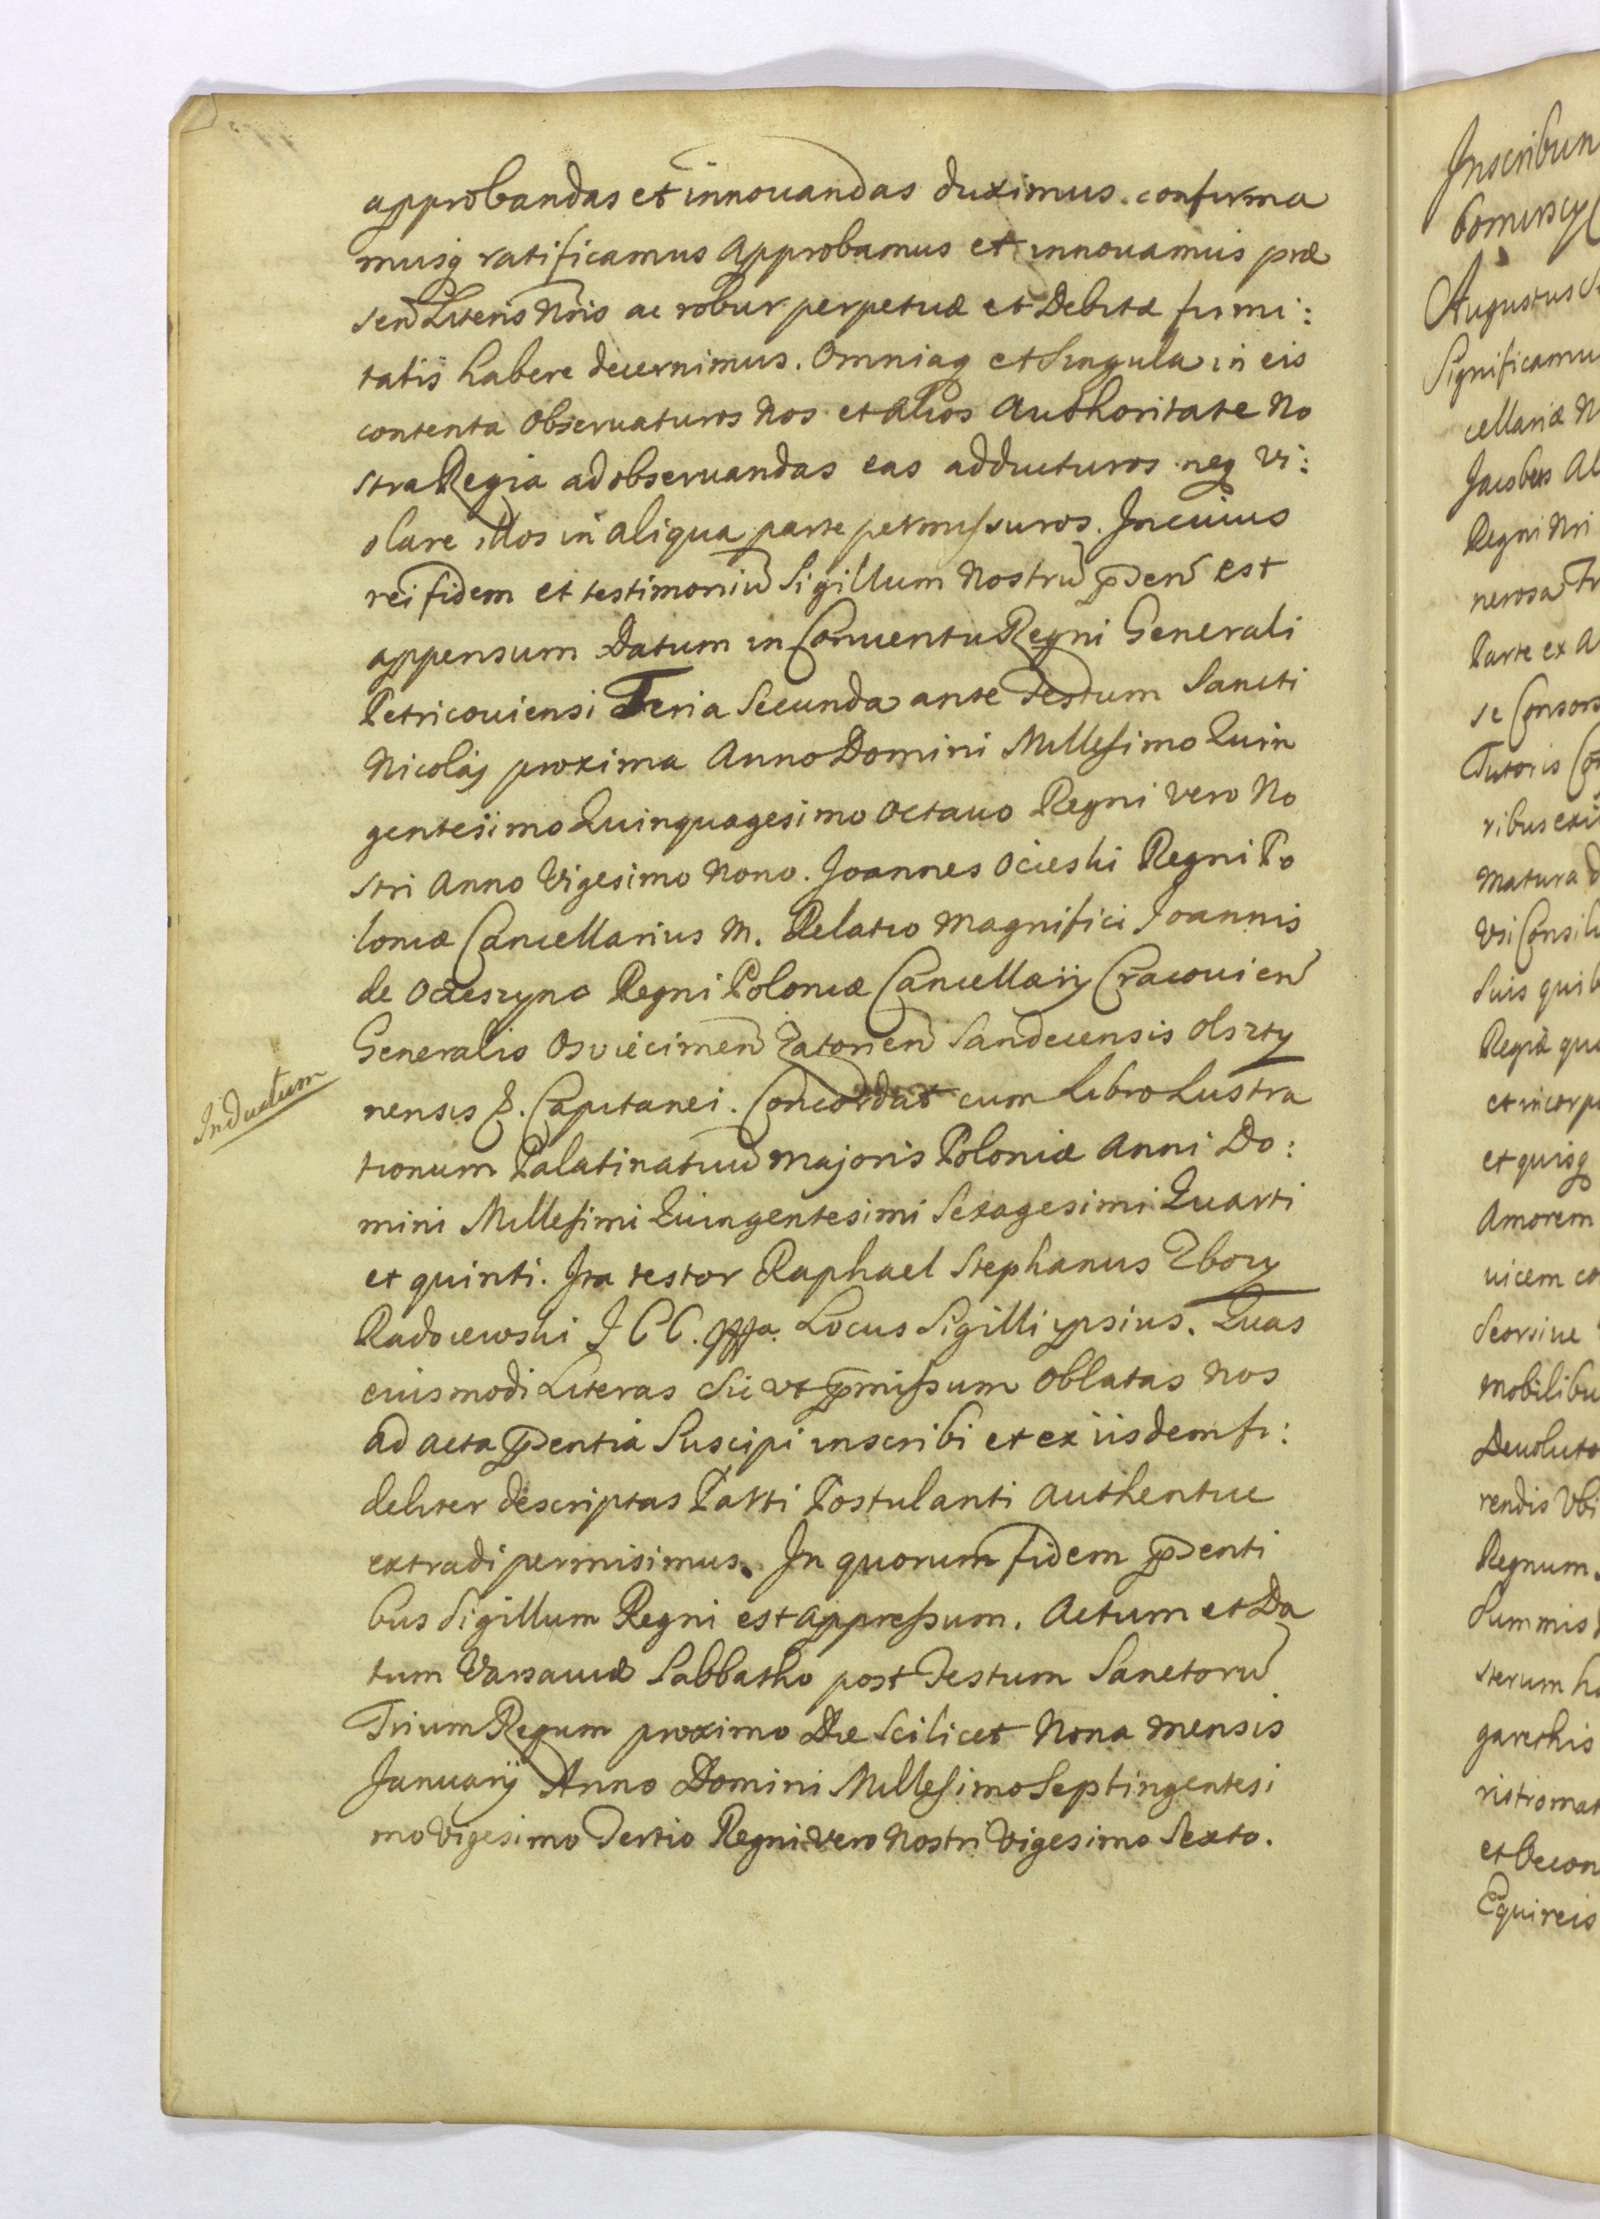 approbandas et innouandas duximus. confirma
musq ratificamus approbamus et innouamus præ
sen Literis Nris ac robur perpetuæ et Debitæ firmi:
tatis habere decernimus. Omniaq et Singula in eis
contenta Obseruaturos Nos et alios Authoritate No
stra Regia ad obseruandas eas adducturos neq Vi:
olare illos in aliqua parte permissuros. In cuius
rei fidem et testimoniū Sigillum Nostrū pñden est
appensum Datum in Conuentu Regni Generali
Petricouiensi Feria Secunda ante Festum Sancti
Nicolaj proxima Anno Domini Millesimo Quin
gentesimo Quinquagesimo Octauo Regni Vero No
stri Anno Vigesimo Nono. Joannes Ocieski Regni Po
loniæ Cancellarius M. Relatio Magnifici Joannis
de Ocieszyno Regni Poloniæ Cancellarij Cracouien
Generalis Osviecimen Zatorien Sandecensis Olszty
nensis &. Capitanei. Concordat cum Libro Lustra
tionum Palatinatuū Majoris Poloniæ Anni Do:
mini Millesimi Quingentesimi Sexagesimi Quarti
et quinti. Ita testor Raphael Stephanus Zbozy
Radoiewski J C C. Locus Sigilli ipsius. Quas
eiusmodi Literas Sic vt pmissum Oblatas Nos
ad acta pñdentia Suscipi inscribi et ex iisdem fi:
deliter descriptas Parti Postulanti Authentice
extradi permisimus. In quorum fidem pñdenti
bus Sigillum Regni est appressum. Actum et Da
tum Varsauiæ Sabbatho post Festum Sanctorū
Trium Regum proximo Die Scilicet Nona Mensis
Januarij Anno Domini Millesimo Septingentesi
mo Vigesimo Tertio Regni vero Nostri Vigesimo Sexto.
Inductum
Inscribun
Augustus
Significamu
cellariæ N
Jacobus Al
Regni Nri
nerosa Fr
Parte ex A
se Consors
Tutoris Con
ribus exi
Matura d
Vsi Consili
Suis quib
Regiæ qu
et incorp
et quisq
Amorem
uicem co
Seorsiue
Mobilibu
Deuoluto
rendis Vbi
Regnum.
Summis
sterum h
garethis
ristromat
et Oecon
Equireis